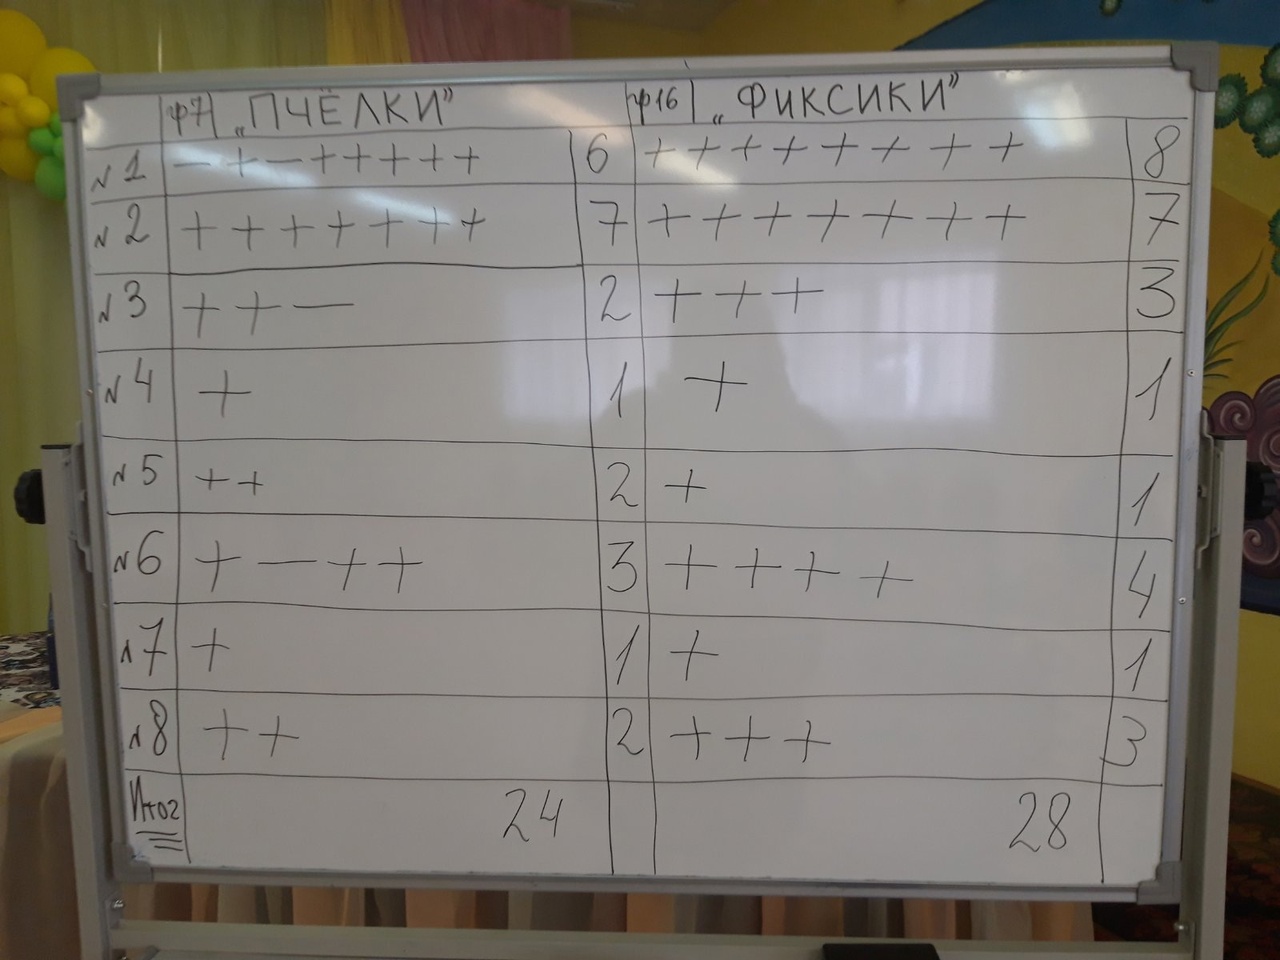 гр7 „ПЧЁЛКИ” гр16 „ФИКСИКИ”
№1 − + − + + + + + 6 + + + + + + + + 8
№2 + + + + + + + 7 + + + + + + + 7
№3 + + − 2 + + + 3
№4 + 1 + 1
№5 + + 2 + 1
№6 + − + + 3 + + + + 4
№7 + 1 + 1
№8 + + 2 + + + 3
Итог 24 28